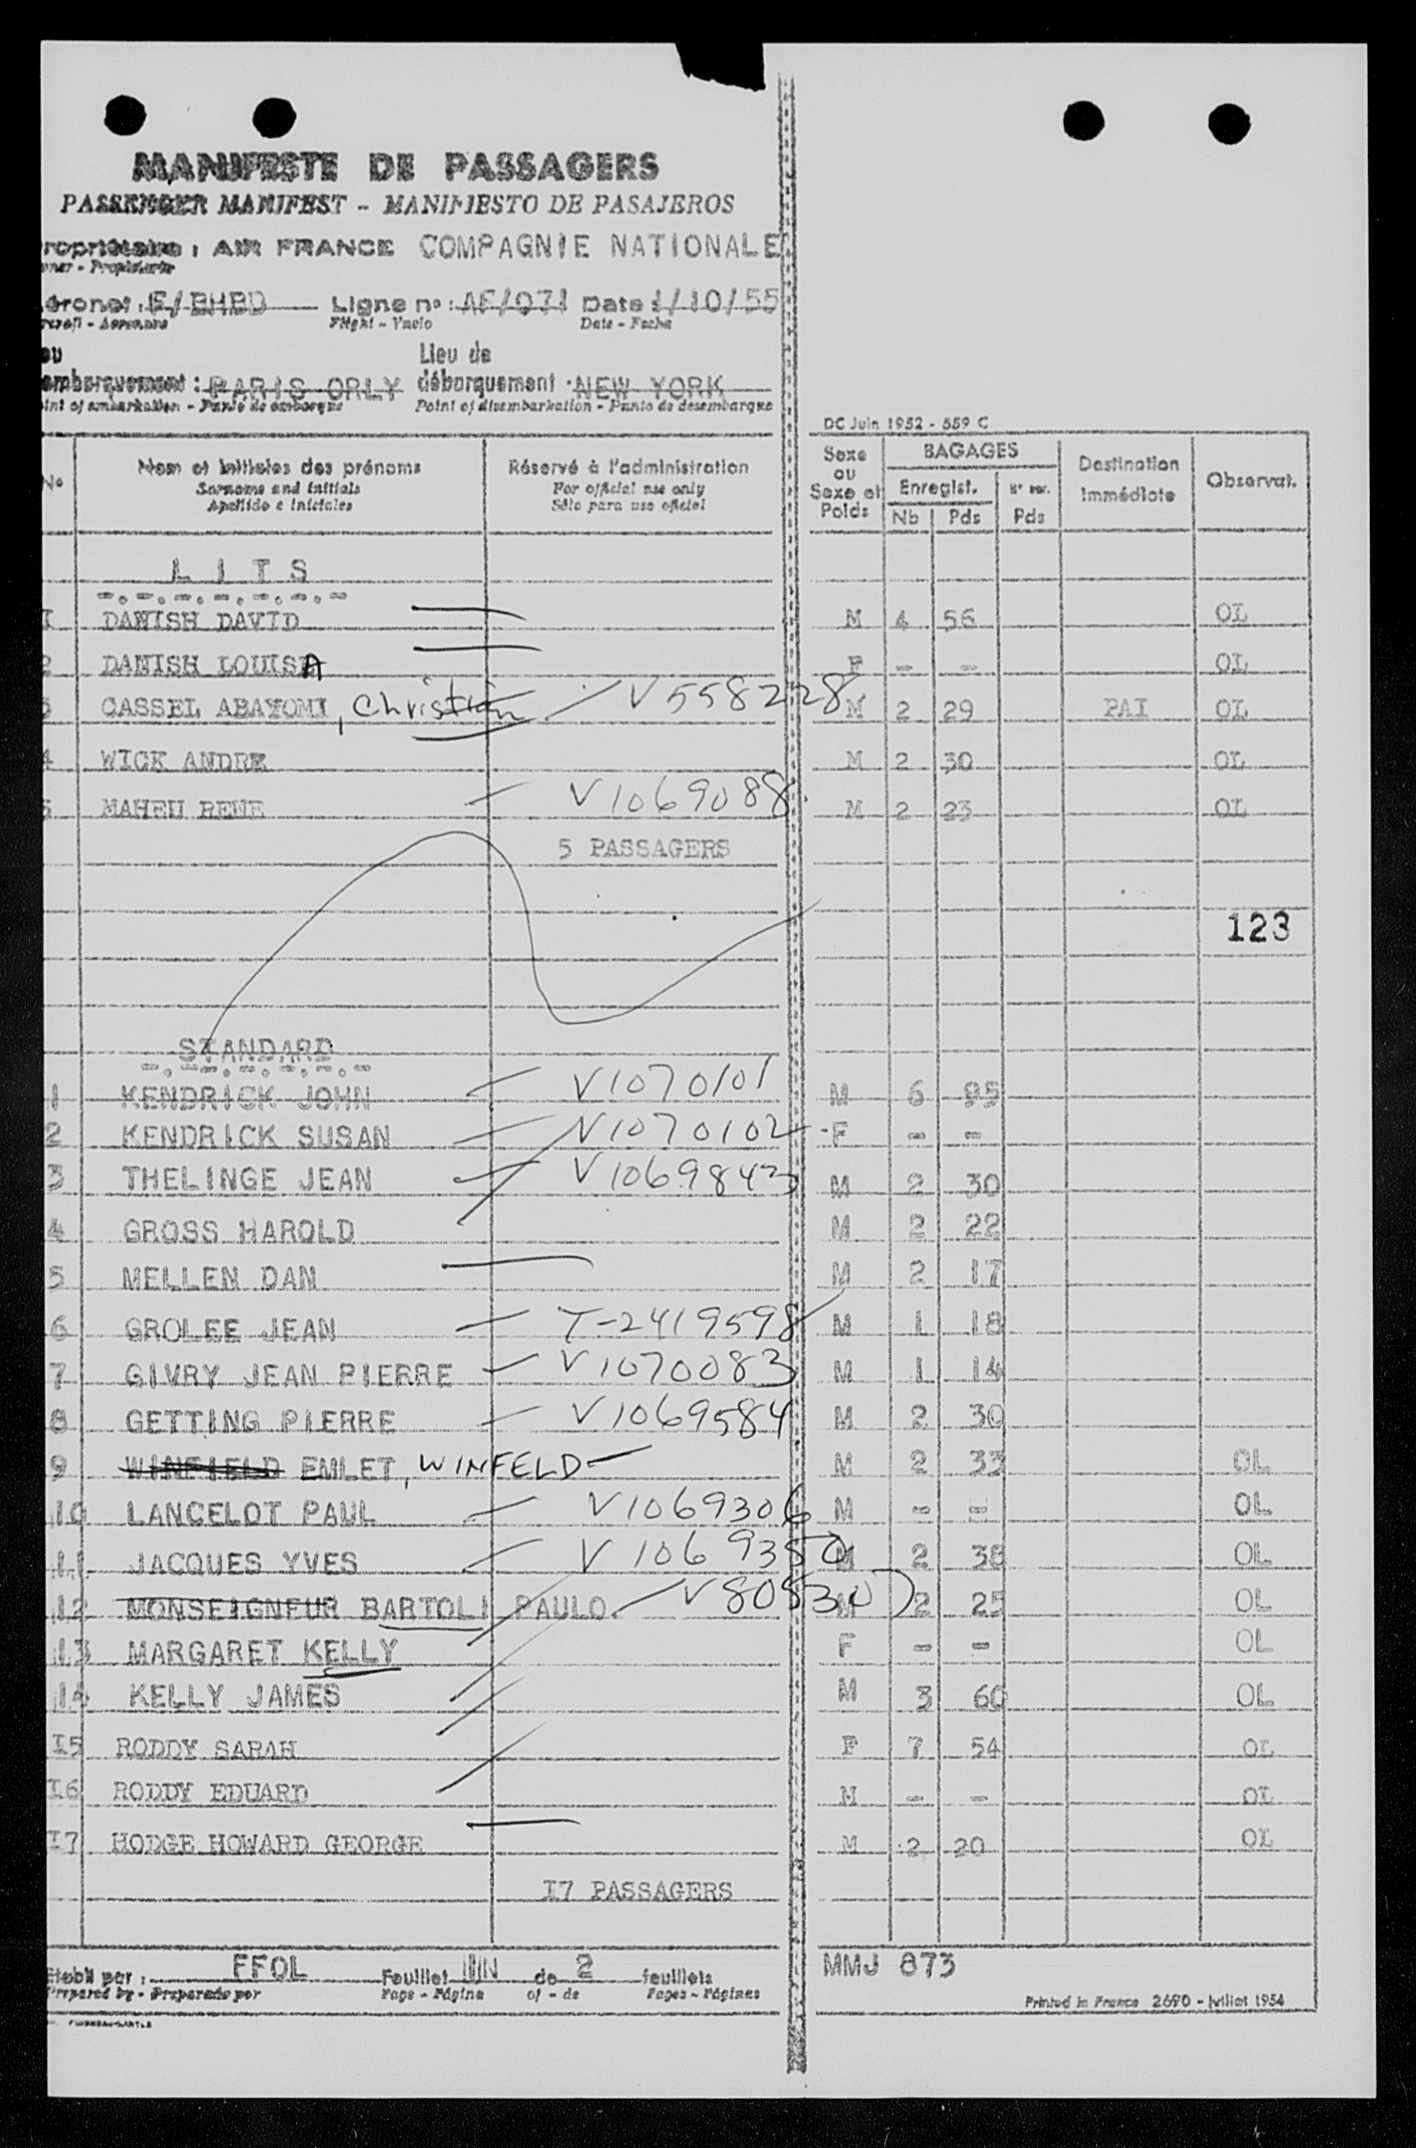 MANIFESTE DE PASSAGERS
PASSENGER MANIFEST - MANIFIESTO DE PASAJEROS
ropriétaire : AIR FRANCE COMPAGNIE NATIONALE
wner - Propietario
éronef : F/BHBD Ligne n° : AF/071 Date 1/10/55
rcraft - Aeronave Flight - Vuelo Date - Fecha
eu Lieu de
embarquement : PARIS ORLY débarquement : NEW YORK
oint of embarkation - Punto de embarque Point of disembarkation - Punto de desembarque
DC Juin 1952 - 559 C
N° Nom et initiales des prénoms Réservé à l'administration Sexe ou Sexe et Poids BAGAGES Destination immédiate Observat.
Surname and initials For official use only Enregist. Nb Pds Pds
Apellido e iniciales Sólo para uso oficial
L I T S
1 DANISH DAVID M 4 56 OL
2 DANISH LOUISA F - - OL
3 CASSEL ABAYOMI, Christian V 558228 M 2 29 PAI OL
4 WICK ANDRE M 2 30 OL
5 MAHEU RENE V1069088 M 2 23 OL
5 PASSAGERS
123
STANDARD
1 KENDRICK JOHN V1070101 M 6 95
2 KENDRICK SUSAN V1070102 F - -
3 THELINGE JEAN V1069843 M 2 30
4 GROSS HAROLD M 2 22
5 MELLEN DAN M 2 17
6 GROLEE JEAN T-2419598 M 1 18
7 GIVRY JEAN PIERRE V1070083 M 1 14
8 GETTING PIERRE V1069584 M 2 30
9 WINFIELD EMLET, WINFELD M 2 33 OL
10 LANCELOT PAUL V1069306 M - - OL
11 JACQUES YVES V1069350 M 2 38 OL
12 MONSEIGNEUR BARTOLI PAULO M 2 25 OL
13 MARGARET KELLY F - - OL
14 KELLY JAMES M 3 60 OL
I5 RODDY SARAH F 7 54 OL
I6 RODDY EDUARD M - - OL
I7 HODGE HOWARD GEORGE M 2 20 OL
I7 PASSAGERS
Etabli par : FFOL Feuillet UN de 2 feuillets MMJ 873
Prepared by - Preparado por Page - Página of - de Pages - Páginas
Printed in France 2690 - Juillet 1954